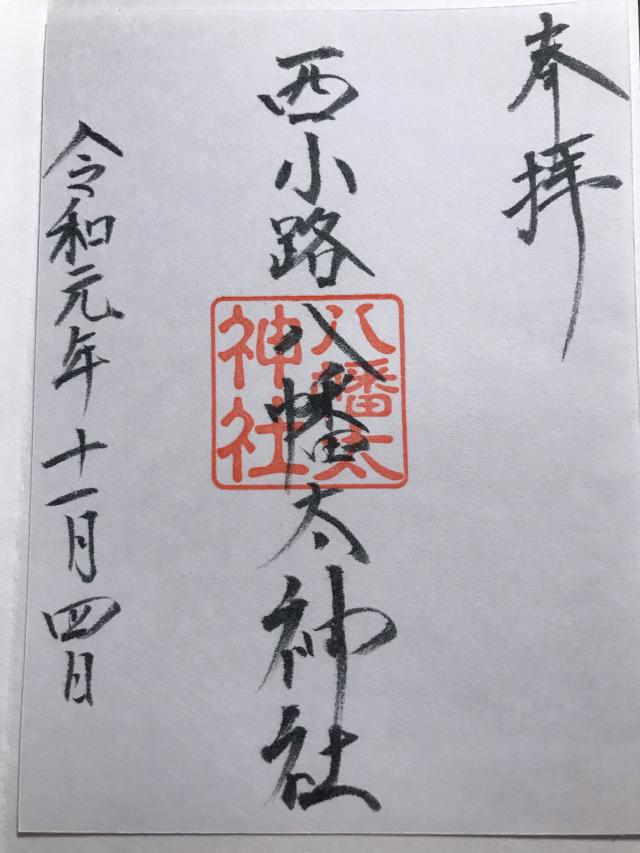 奉拝
西小路八幡太神社
八幡太
神社
令和元年十一月四日